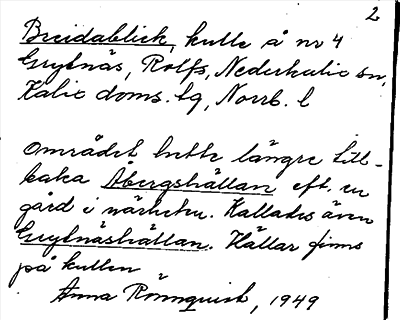 2
Breidablick, kulle å nr 4
Grytnäs, Rolfs, Nederkalix sn,
Kalix doms. tg, Norrb. l
Området hette längre till-
baka Åbergshällan eft. en
gård i närheten. Kallades även
Grytnäshällan. Hällar finns
på kullen
Anna Rönnquist, 1949